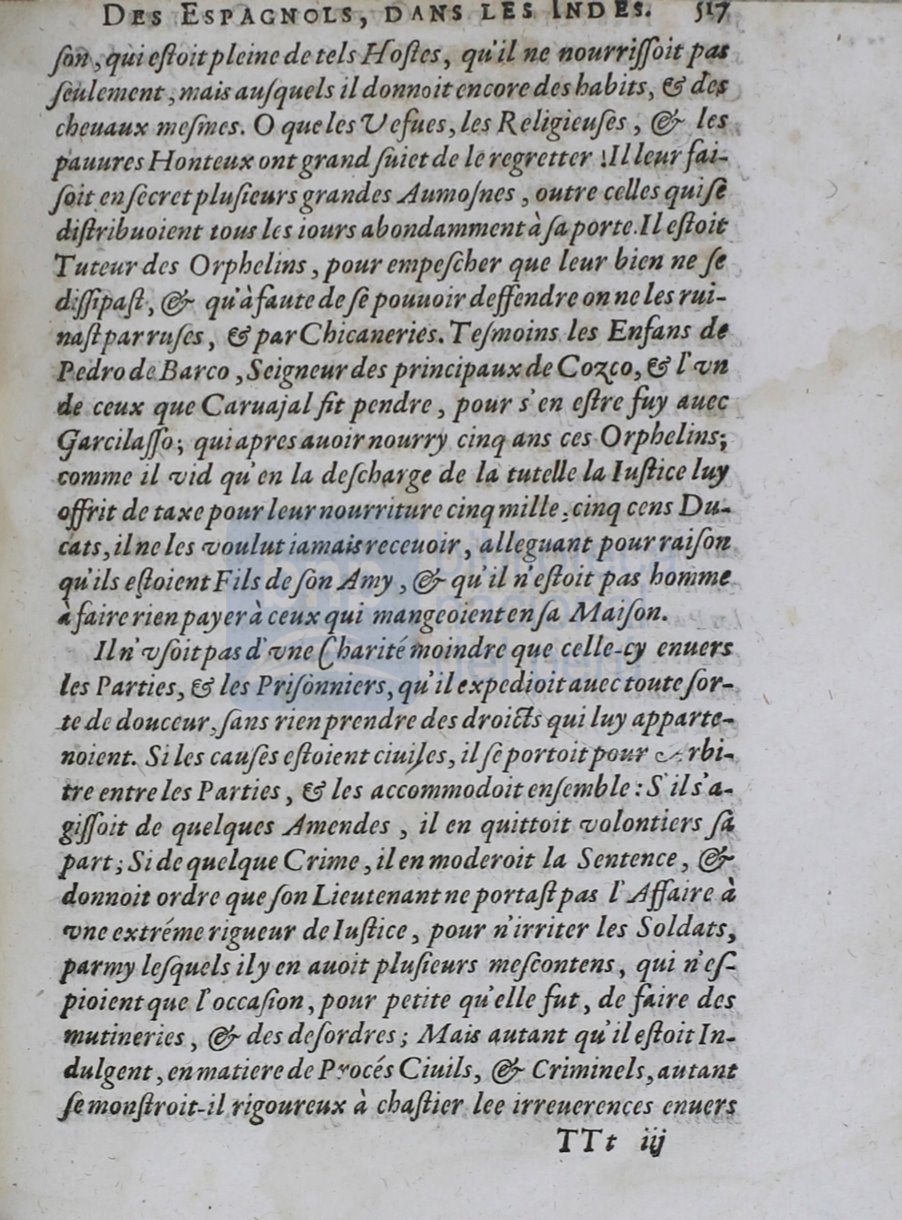 DES ESPAGNOLS, DANS LES INDES. 517
ſon, qui eſtoit pleine de tels Hoſtes, qu'il ne nourriſſoit pas
ſeulement, mais auſquels il donnoit encore des habits, & des
cheuaux meſmes. O que les Vefues, les Religieuſes, & les
pauures Honteux ont grand ſuiet de le regretter ! Il leur fai-
ſoit en ſecret pluſieurs grandes Aumoſnes, outre celles qui ſe
diſtribuoient tous les iours abondamment à ſa porte. Il eſtoit
Tuteur des Orphelins, pour empeſcher que leur bien ne ſe
diſſipaſt, & qu'à faute de ſe pouuoir deffendre on ne les rui-
naſt par ruſes, & par Chicaneries. Teſmoins les Enfans de
Pedro de Barco, Seigneur des principaux de Cozco, & l'vn
de ceux que Caruajal fit pendre, pour s'en eſtre fuy auec
Garcilaſſo; qui apres auoir nourry cinq ans ces Orphelins;
comme il vid qu'en la deſcharge de la tutelle la Iuſtice luy
offrit de taxe pour leur nourriture cinq mille, cinq cens Du-
cats, il ne les voulut iamais receuoir, alleguant pour raiſon
qu'ils eſtoient Fils de ſon Amy, & qu'il n'eſtoit pas homme
à faire rien payer à ceux qui mangeoient en ſa Maiſon.
Il n'vſoit pas d'vne Charité moindre que celle-cy enuers
les Parties, & les Priſonniers, qu'il expedioit auec toute ſor-
te de douceur, ſans rien prendre des droicts qui luy apparte-
noient. Si les cauſes eſtoient ciuiles, il ſe portoit pour Arbi-
tre entre les Parties, & les accommodoit enſemble : S'il s'a-
giſſoit de quelques Amendes, il en quittoit volontiers ſa
part; Si de quelque Crime, il en moderoit la Sentence, &
donnoit ordre que ſon Lieutenant ne portaſt pas l'Affaire à
vne extréme rigueur de Iuſtice, pour n'irriter les Soldats,
parmy leſquels il y en auoit pluſieurs meſcontens, qui n'eſ-
pioient que l'occaſion, pour petite qu'elle fut, de faire des
mutineries, & des deſordres; Mais autant qu'il eſtoit In-
dulgent, en matiere de Procés Ciuils, & Criminels, autant
ſe monſtroit-il rigoureux à chaſtier lee irreuerences enuers
TTt iij